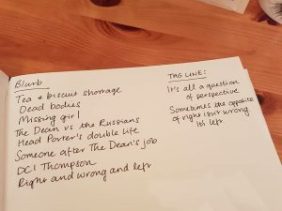 Blurb
Tea + biscuit shortage
Dead bodies
Missing girl
The Dean vs the Russians
Head Porter's double life
Someone after The Dean's job
DCI Thompson
Right and wrong and left
TAG LINE:
It's all a question
of perspective
Sometimes the opposite
of right isn't wrong
It's left